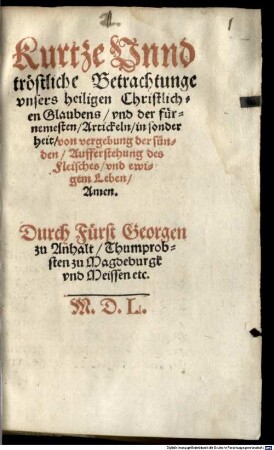 1
Kurtze Vnnd
tröstliche Betrachtunge
vnsers heiligen Christlich-
en Glaubens / vnd der für-
nemesten / Artickeln / in sonder
heit / von vergebung der sün-
den / Aufferstehung des
Fleisches / vnd ewi-
gem Leben /
Amen.
Durch Fürst Georgen
zu Anhalt / Thumprob-
sten zu Magdeburgk
vnd Meissen etc.
M. D. L.